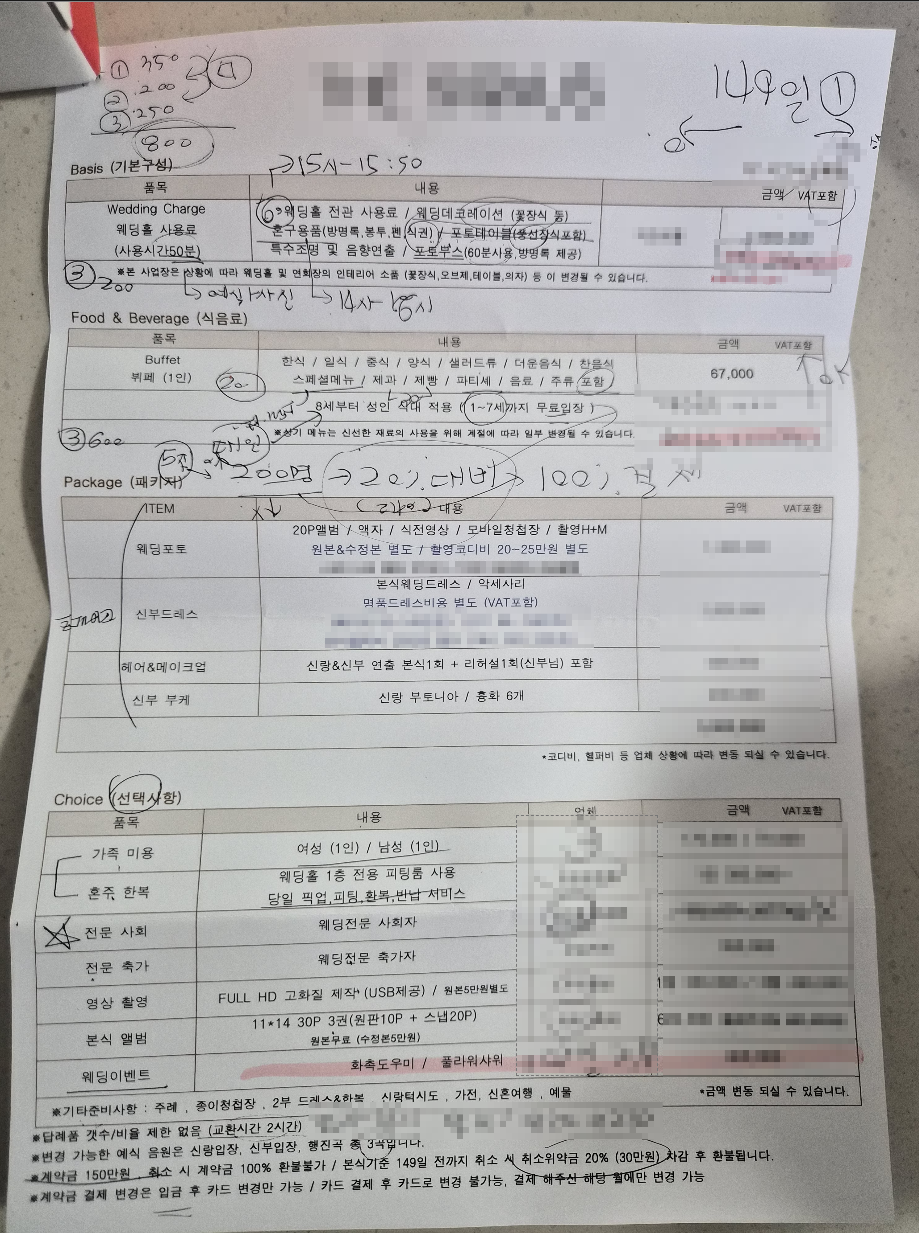 ① 350
② 200
③ 250
800
149일 ①
Basis (기본구성)
15시-15:50
품목 내용 금액/ VAT포함
Wedding Charge
웨딩홀 사용료
(사용시간50분)
웨딩홀 전관 사용료 / 웨딩데코레이션 (꽃장식 등)
혼구용품(방명록,봉투,펜,식권) / 포토테이블(풍선장식포함)
특수조명 및 음향연출 / 포토부스(60분사용,방명록 제공)
※본 사업장은 상황에 따라 웨딩홀 및 연회장의 인테리어 소품 (꽃장식,오브제,테이블,의자) 등 이 변경될 수 있습니다.
③ 200
14시-16시
Food & Beverage (식음료)
품목 내용 금액 VAT포함
Buffet
뷔페 (1인)
한식 / 일식 / 중식 / 양식 / 샐러드류 / 더운음식 / 찬음식
스페셜메뉴 / 제과 / 제빵 / 파티세 / 음료 / 주류 포함
67,000
OK
8세부터 성인 식대 적용 ( 1~7세까지 무료입장 )
※상기 메뉴는 신선한 재료의 사용을 위해 계절에 따라 일부 변경될 수 있습니다.
③ 600
200명 → 20% 대비 > 100% 결제
Package (패키지)
ITEM 내용 금액 VAT포함
웨딩포토
20P앨범 / 액자 / 식전영상 / 모바일청첩장 / 촬영H+M
원본&수정본 별도 / 촬영코디비 20-25만원 별도
신부드레스
본식웨딩드레스 / 악세사리
명품드레스비용 별도 (VAT포함)
헤어&메이크업 신랑&신부 연출 본식1회 + 리허설1회(신부님) 포함
신부 부케 신랑 부토니아 / 흉화 6개
*코디비, 헬퍼비 등 업체 상황에 따라 변동 되실 수 있습니다.
Choice (선택사항)
품목 내용 업체 금액 VAT포함
가족 미용 여성 (1인) / 남성 (1인)
혼주 한복
웨딩홀 1층 전용 피팅룸 사용
당일 픽업,피팅,환복,반납 서비스
전문 사회 웨딩전문 사회자
전문 축가 웨딩전문 축가자
영상 촬영 FULL HD 고화질 제작* (USB제공) / 원본5만원별도
본식 앨범
11*14 30P 3권(원판10P + 스냅20P)
원본무료 (수정본5만원)
웨딩이벤트 화촉도우미 / 플라워샤워
※기타준비사항 : 주례 , 종이청첩장 , 2부 드레스&한복 신랑턱시도 , 가전, 신혼여행 , 예물 *금액 변동 되실 수 있습니다.
※답례품 갯수/비율 제한 없음 (교환시간 2시간)
※변경 가능한 예식 음원은 신랑입장, 신부입장, 행진곡 총 3곡입니다.
※계약금 150만원 , 취소 시 계약금 100% 환불불가 / 본식기준 149일 전까지 취소 시 취소위약금 20% (30만원) 차감 후 환불됩니다.
※계약금 결제 변경은 입금 후 카드 변경만 가능 / 카드 결제 후 카드로 변경 불가능, 결제 해주신 해당 월에만 변경 가능